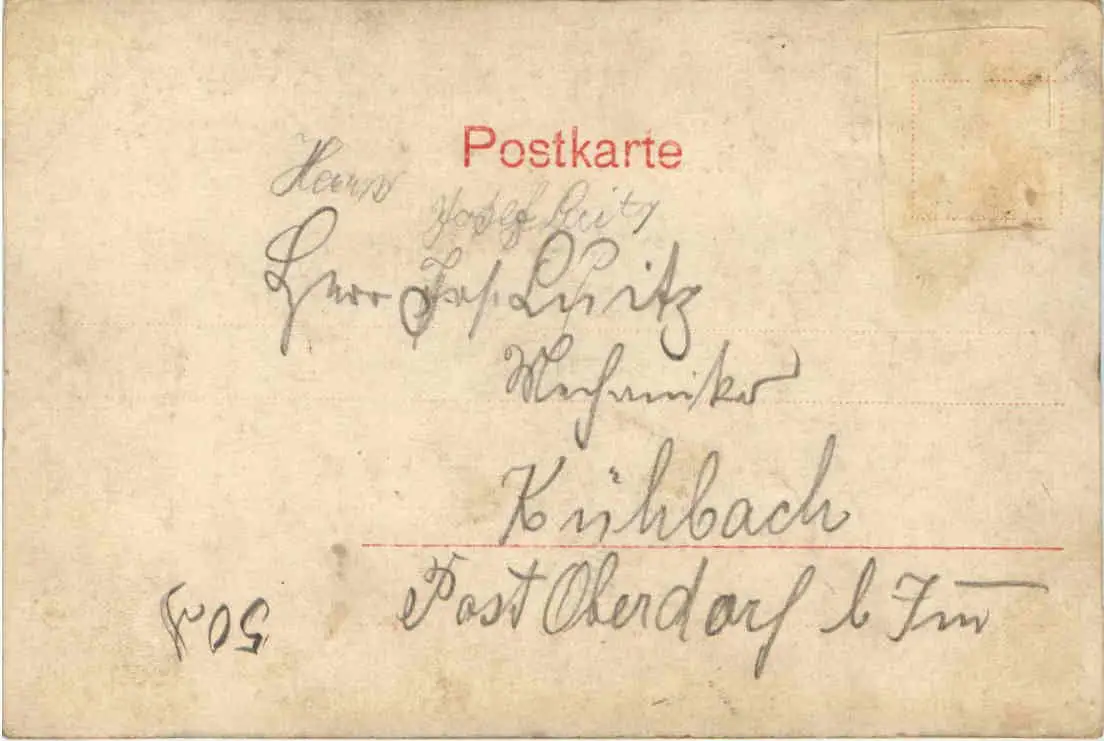 Postkarte
Herrn
Josef
Herr Jos.
Mechaniker
Kühbach
Post Oberdorf b Im
50